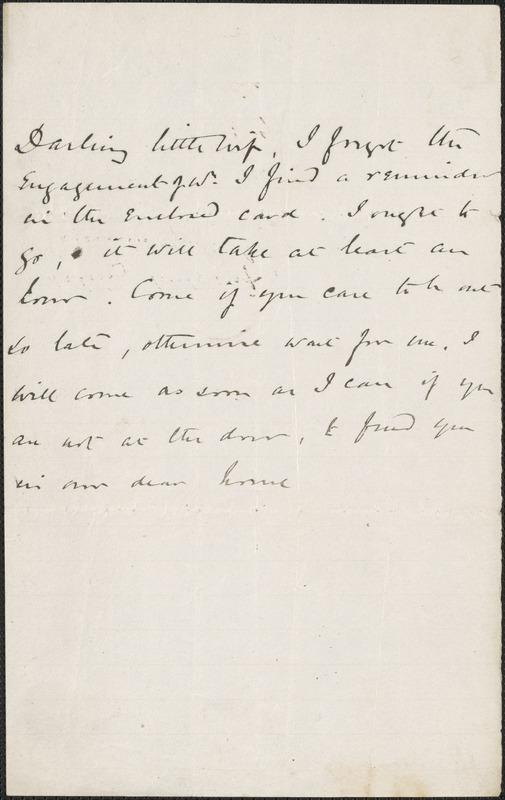 Darling little wife, I forgot the
Engagement of wh. I find a reminder
in the enclosed card. I ought to
go, it will take at least an
hour. Come if you care to be out
so late, otherwise wait for me. I
will come as soon as I can if you
are not at the door, to find you
in our dear home